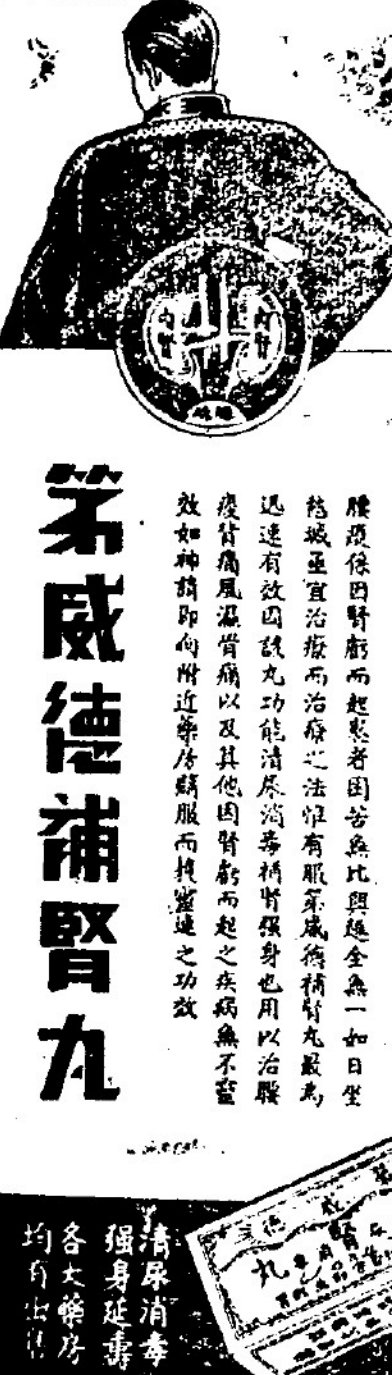 內腎
內腎
腰痠係因腎虧而起患者困苦無比與趣全無一如日坐
愁城亟宜治療而治療之法惟有服第威德補腎丸最為
迅速有效因該丸功能清尿消毒補腎強身也用以治腰
痠背痛風濕骨痛以及其他因腎虧而起之疾病無不靈
效如神請即向附近藥房購服而獲靈速之功效
第威德補腎丸
清尿消毒
强身延壽
各大藥房
均有出售